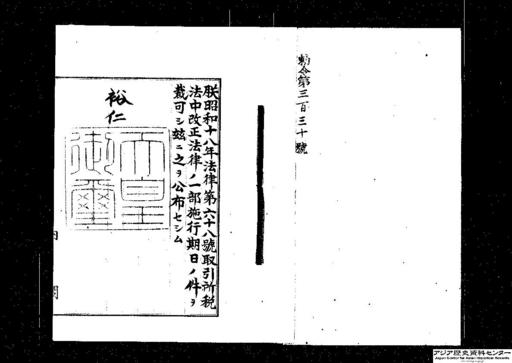 勅令第三百三十號
朕昭和十八年法律第六十八號取引所税
法中改正法律ノ一部施行期日ノ件ヲ
裁可シ玆ニ之ヲ公布セシム
裕仁
天皇
御璽
内 閣
アジア歴史資料センター
Japan Center for Asian Historical Records